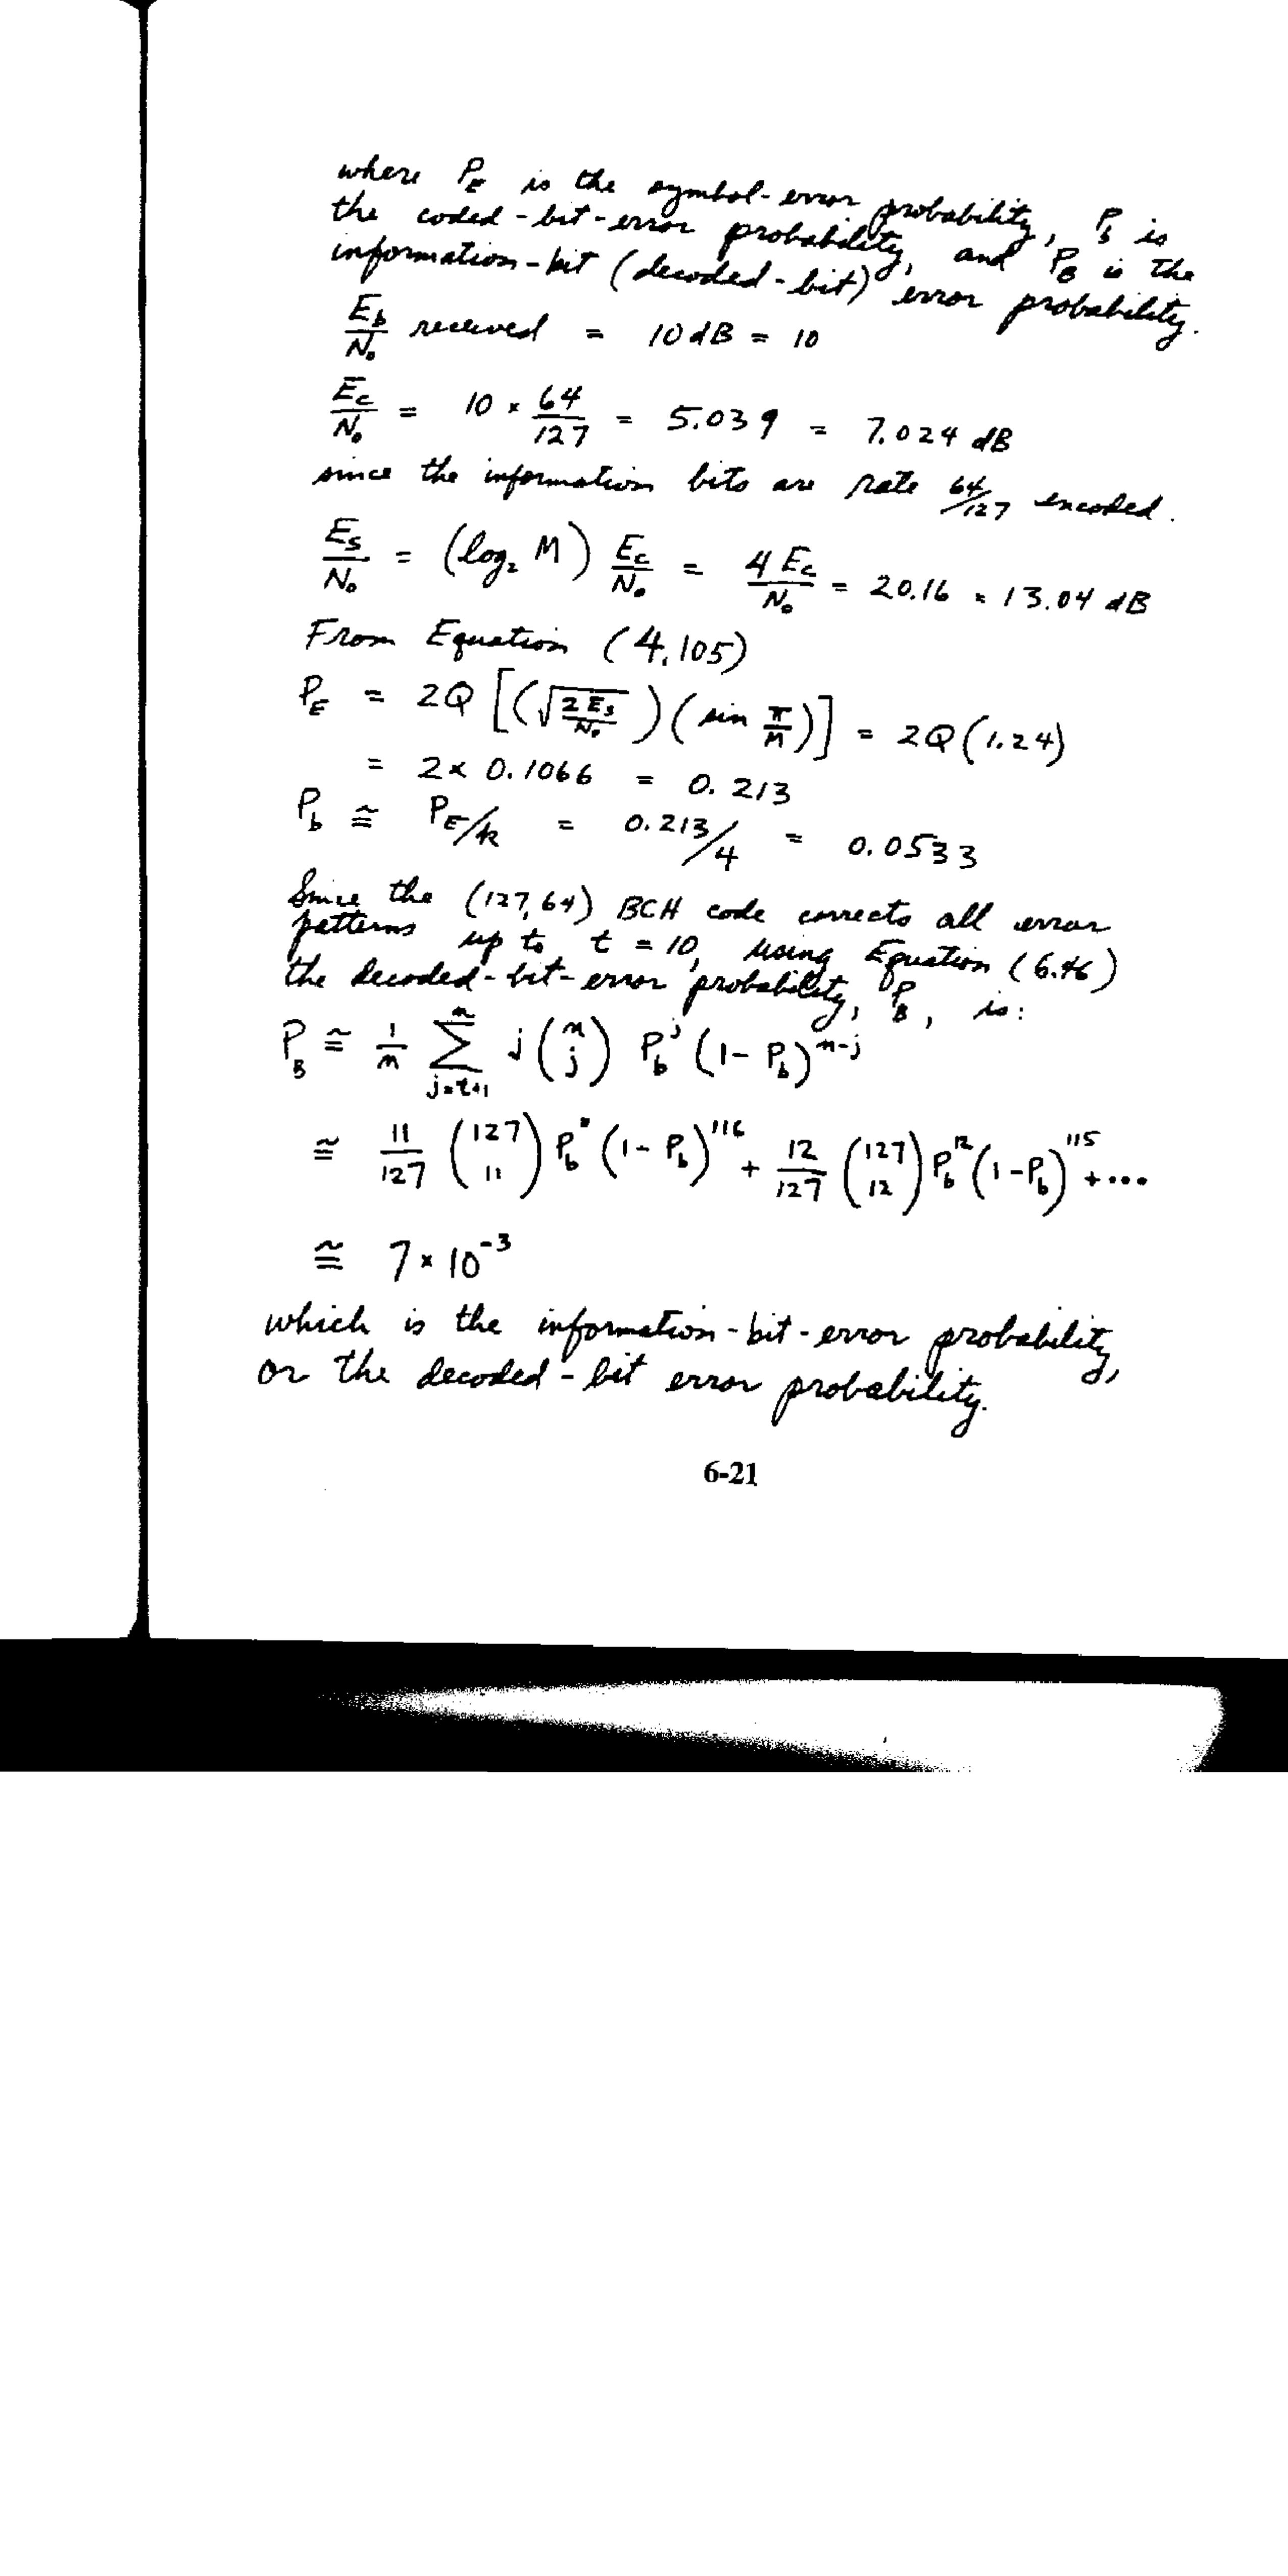 where P_E is the symbol-error probability, P_b is
the coded-bit-error probability, and P_B is the
information-bit (decoded-bit) error probability.
E_b/N_0 received = 10 dB = 10
E_c/N_0 = 10 × 64/127 = 5.039 = 7.024 dB
since the information bits are rate 64/127 encoded.
E_s/N_0 = (log_2 M) E_c/N_0 = 4 E_c/N_0 = 20.16 = 13.04 dB
From Equation (4.105)
P_E = 2Q [(√(2 E_s/N_0)) (sin π/M)] = 2Q (1.24)
= 2 × 0.1066 = 0.213
P_b ≅ P_E/k = 0.213/4 = 0.0533
Since the (127, 64) BCH code corrects all error
patterns up to t = 10, using Equation (6.46)
the decoded-bit-error probability, P_B, is:
P_B ≅ 1/n Σ_{j=t+1}^{n} j (n j) P_b^j (1 - P_b)^{n-j}
≅ 11/127 (127 11) P_b^{11} (1 - P_b)^{116} + 12/127 (127 12) P_b^{12} (1 - P_b)^{115} + ...
≅ 7 × 10^{-3}
which is the information-bit-error probability,
or the decoded-bit error probability.
6-21